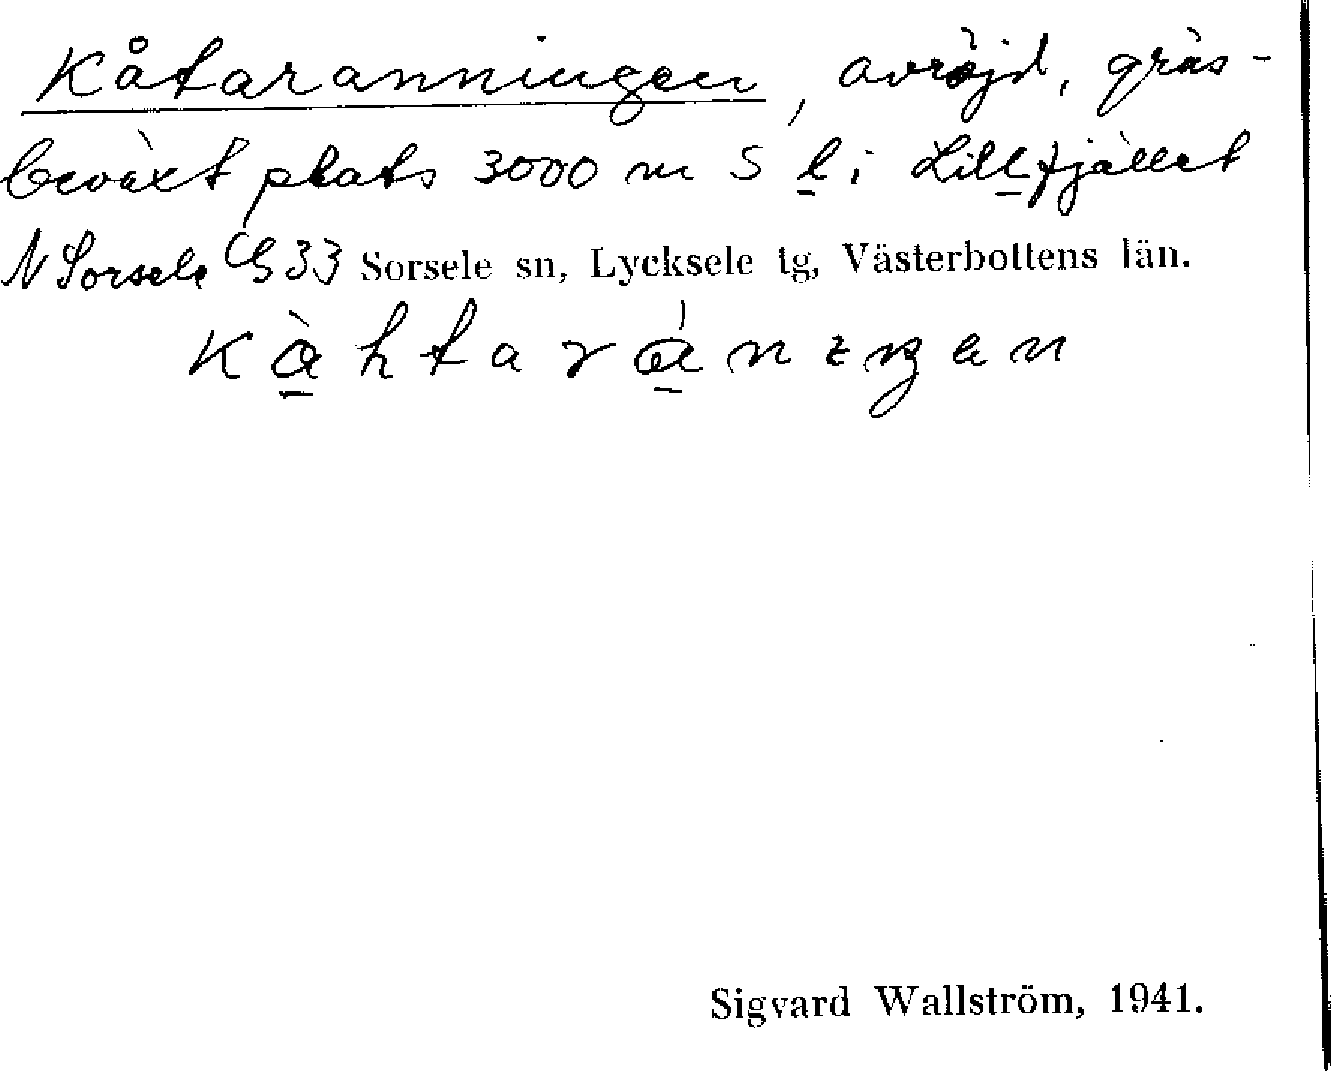 Kåtaranningen, avröjd, gräs-
beväxt plats 3000 m S l i Lillfjället
N Sorsele CS 33 Sorsele sn, Lycksele tg, Västerbottens län.
Sigvard Wallström, 1941.